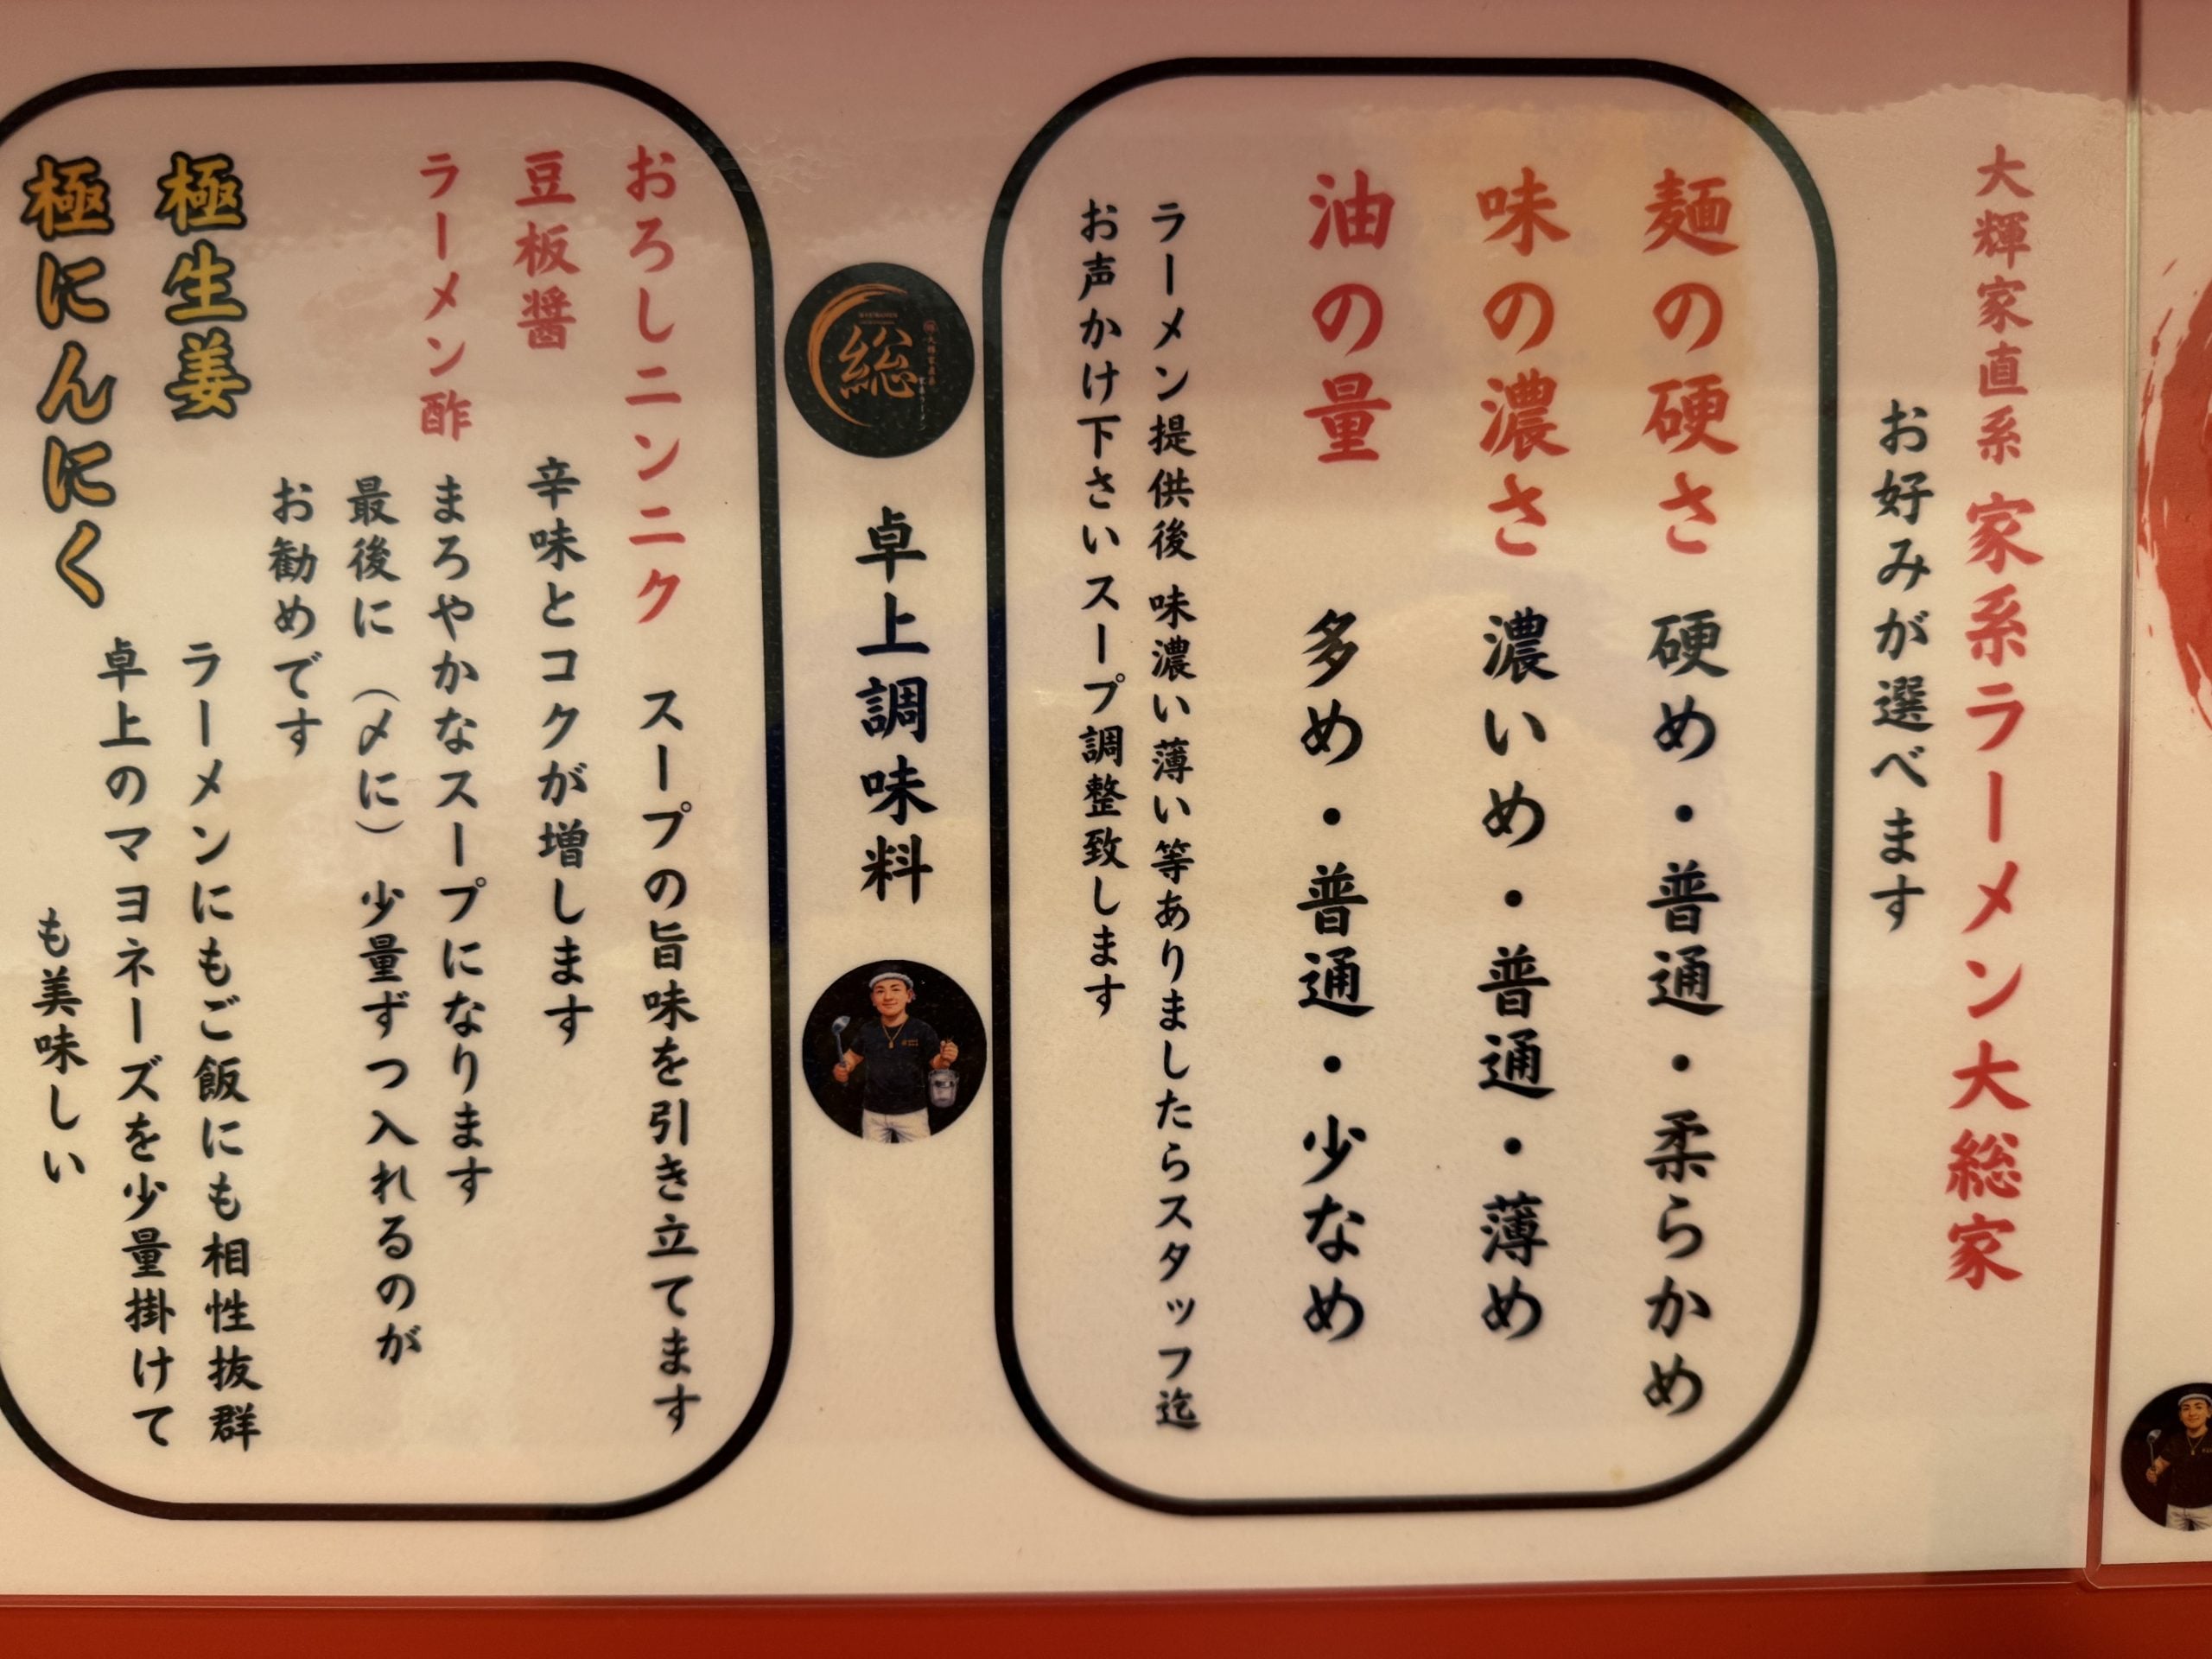 大輝家直系 家系ラーメン大総家
お好みが選べます
麺の硬さ 硬め・普通・柔らかめ
味の濃さ 濃いめ・普通・薄め
油の量 多め・普通・少なめ
ラーメン提供後 味濃い薄い等ありましたらスタッフ迄
お声かけ下さいスープ調整致します
総
卓上調味料
おろしニンニク スープの旨味を引き立てます
豆板醤 辛味とコクが増します
ラーメン酢 まろやかなスープになります
最後に(〆に)少量ずつ入れるのが
お勧めです
極生姜 ラーメンにもご飯にも相性抜群
極にんにく 卓上のマヨネーズを少量掛けて
も美味しい